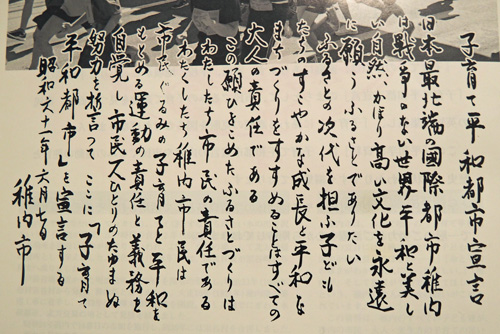 子育て平和都市宣言
日本最北端の国際都市稚内
は戦争のない世界平和と美し
い自然、かほり高い文化を永遠
に願うふるさとでありたい
ふるさとの次代を担ふ子ども
たちのすこやかな成長と平和な
まちづくりをすすめることはすべての
大人の責任である
この願ひをこめたふるさとづくりは
わたしたち市民の責任である
わたくしたち稚内市民は
市民ぐるみの子育てと平和を
もとめる運動の責任と義務を
自覚し市民一人ひとりのたゆまぬ
努力を誓って ここに「子育て
平和都市」を宣言する
昭和六十一年六月七日
稚内市